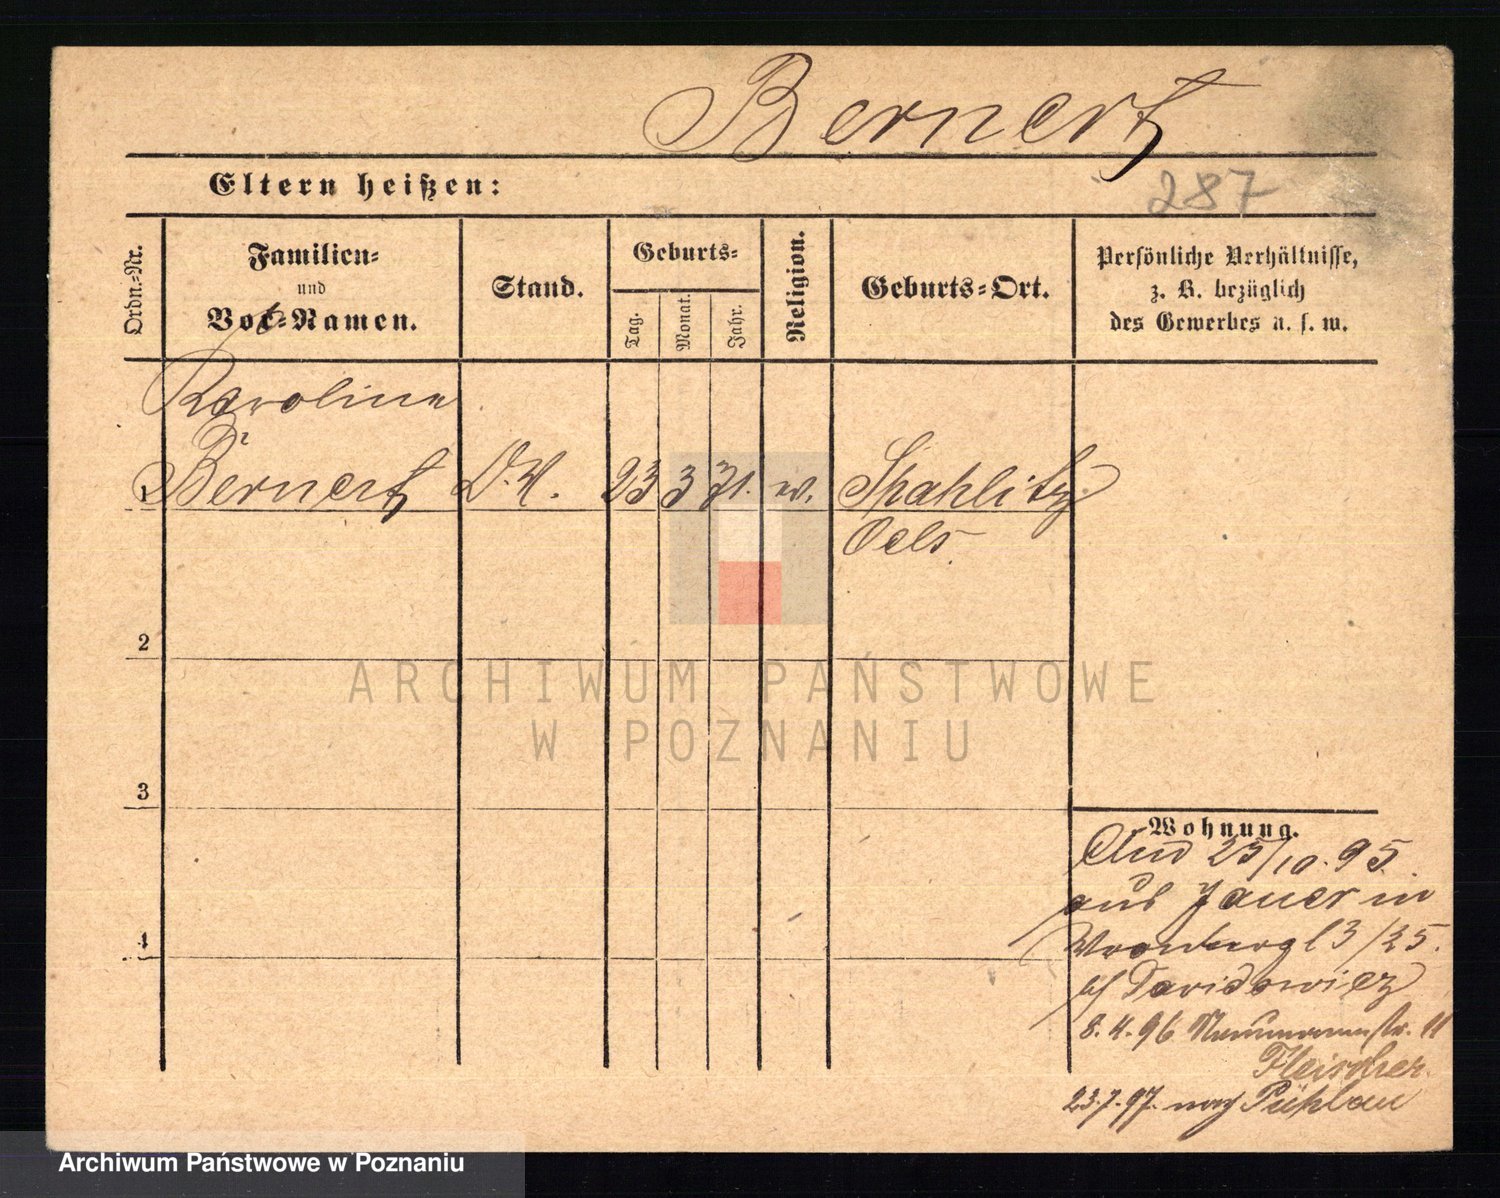 Bernert
Eltern heißen:
287
Ordn.-Nr.
Familien-
und
Vor-Namen.
Stand.
Geburts-
Tag.
Monat.
Jahr.
Religion.
Geburts-Ort.
Persönliche Verhältnisse,
z. B. bezüglich
des Gewerbes u. s. w.
Karoline
1 Bernert D. M. 23 3 71. ev. Spahlitz
Oels
2
ARCHIWUM PAŃSTWOWE
W POZNANIU
3
Wohnung.
25/10.95.
aus Jauer in
3/25.
b/ Davidowicz
4
8.4.96 Naumannstr. 11
Fleischer.
23.7.97. nach
Archiwum Państwowe w Poznaniu